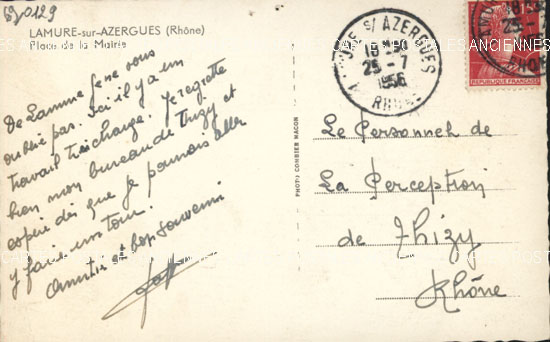 69029
LAMURE-sur-AZERGUES (Rhône)
Place de la Mairie
De Lamure je ne vous
oublie pas. Ici il y a un
travail très chargé. Je regrette
bien mon bureau de Thizy et
espère dès que je pourrais aller
y faire un tour.
Amitiés et bon souvenir
PHOTO COMBIER MACON
Le Personnel de
La Perception
de Thizy
Rhône
S/ AZERGUES
25-7
1956
RHONE
REPUBLIQUE FRANCAISE
CARTES POSTALES ANCIENNES